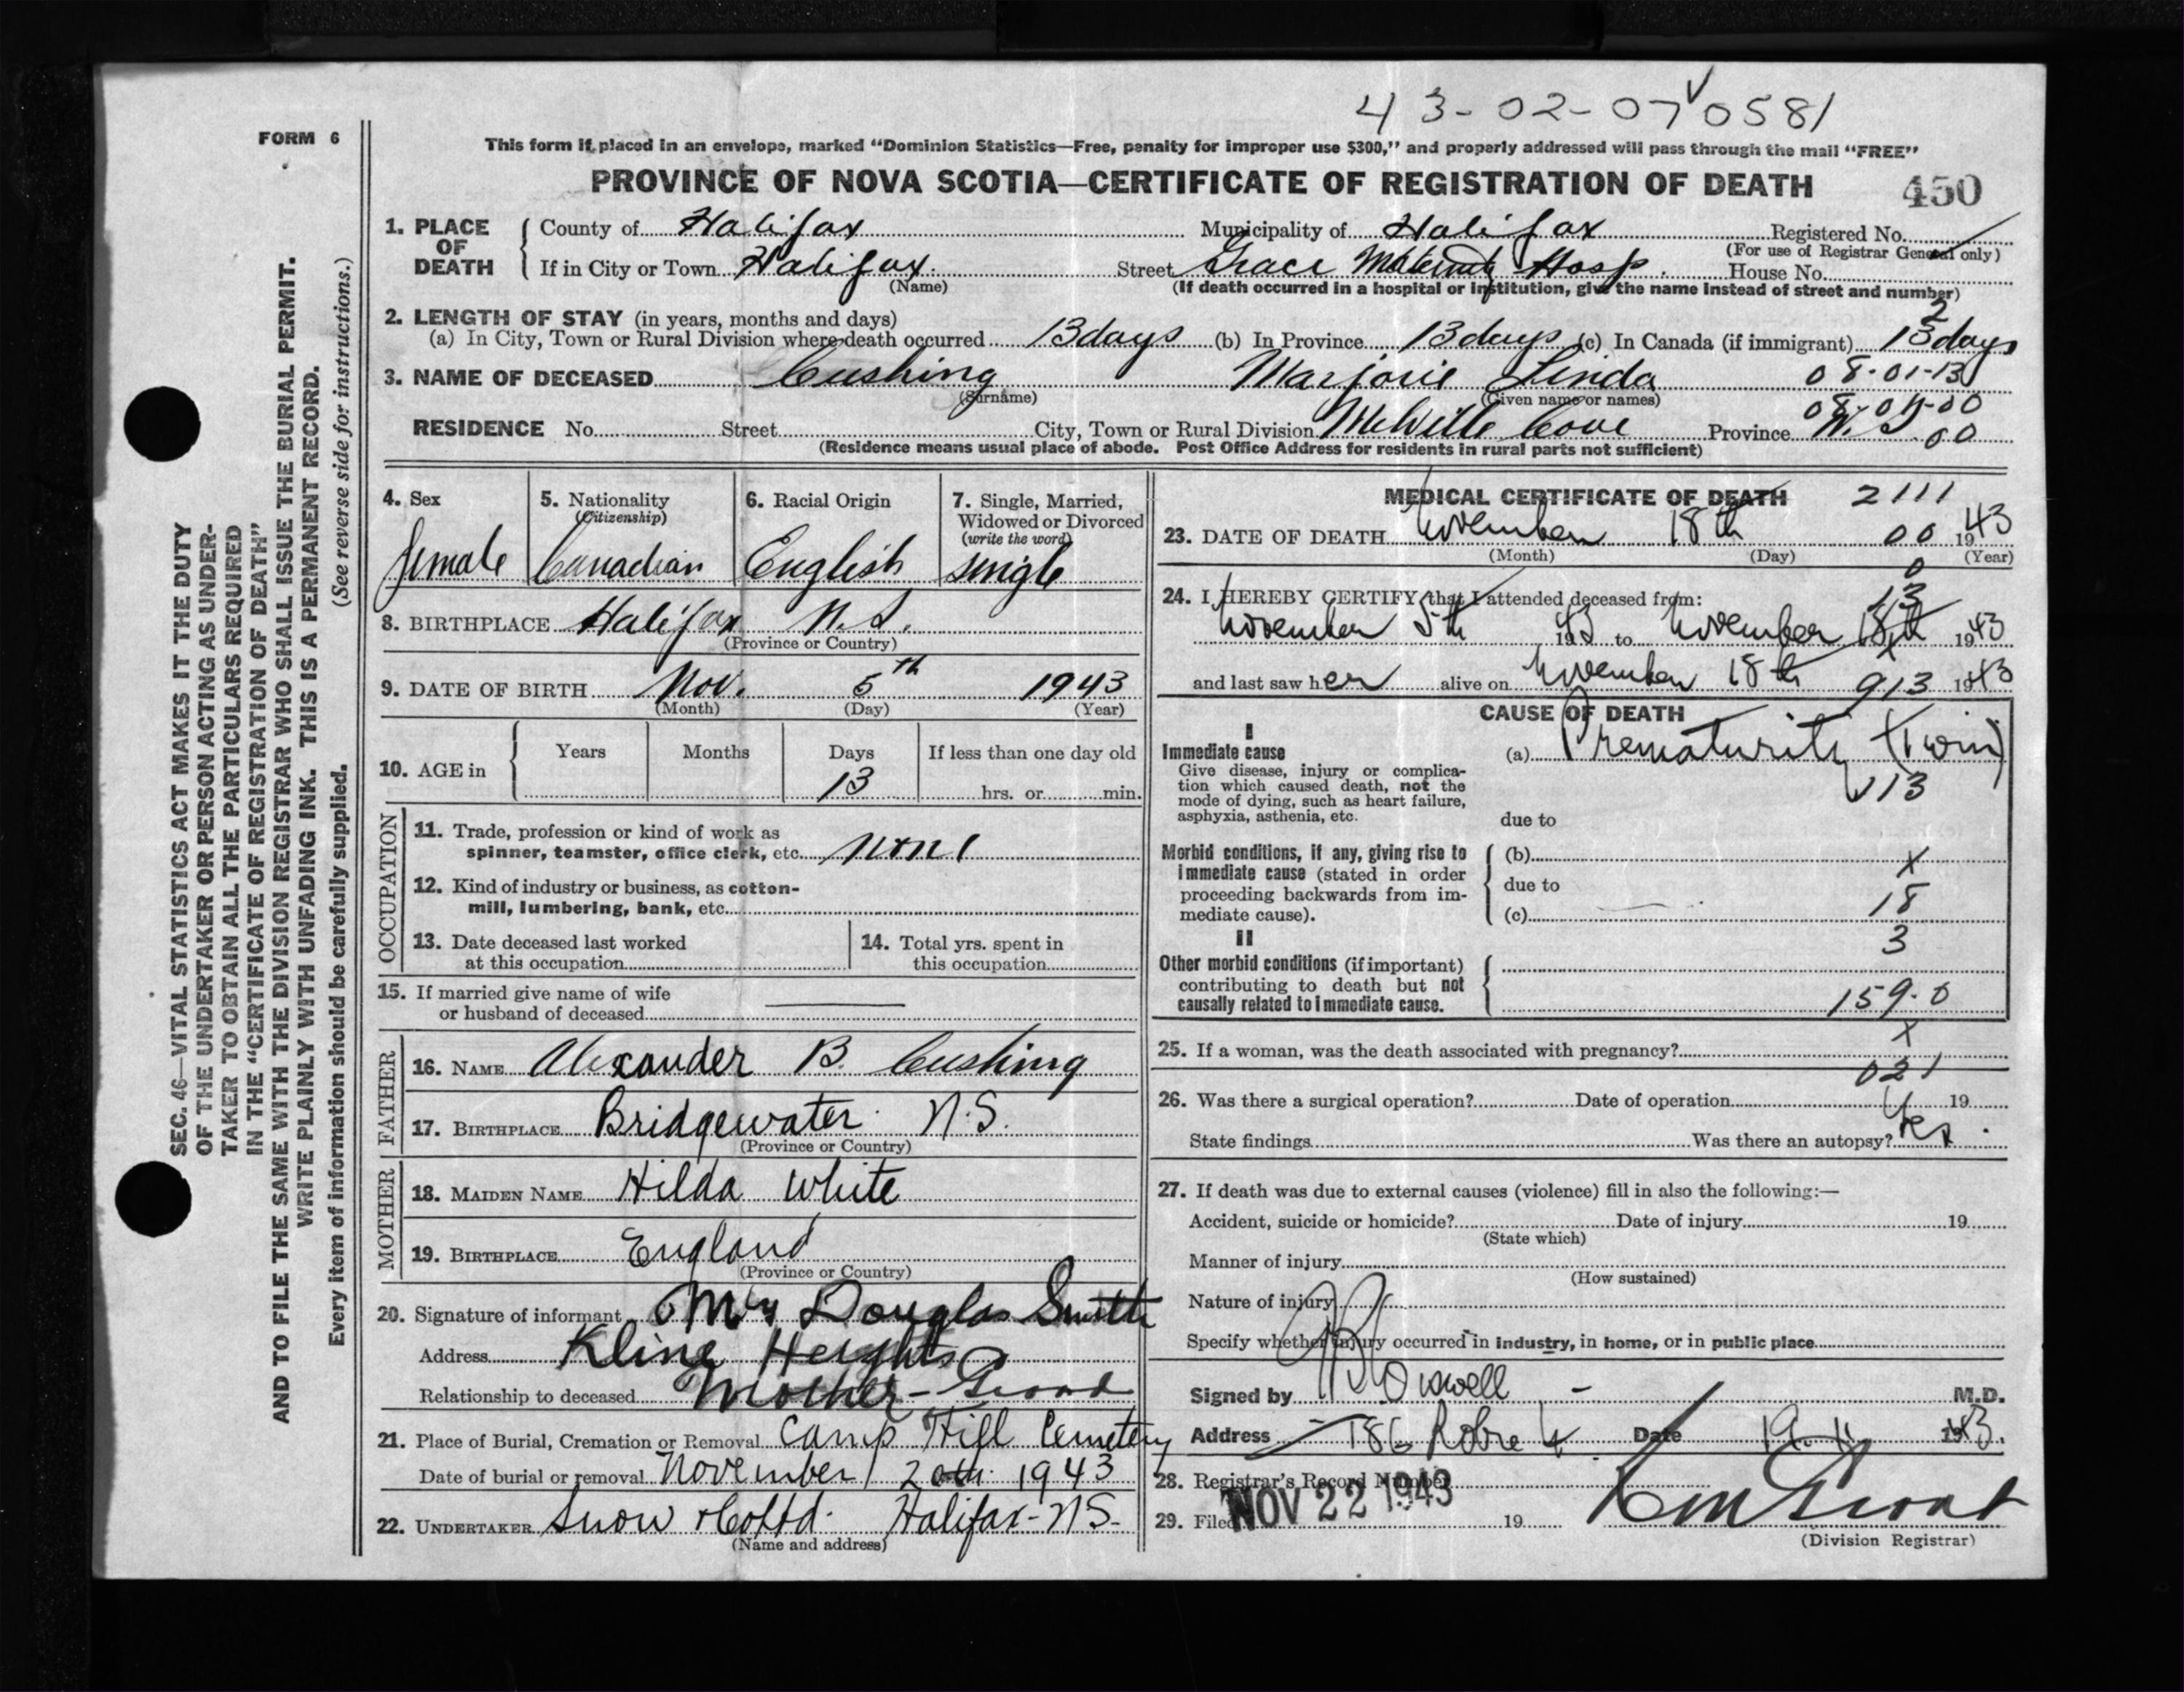 43-02-07 0581
FORM 6
This form if placed in an envelope, marked "Dominion Statistics—Free, penalty for improper use $300," and properly addressed will pass through the mail "FREE"
PROVINCE OF NOVA SCOTIA—CERTIFICATE OF REGISTRATION OF DEATH 450
1. PLACE OF DEATH
County of Halifax Municipality of Halifax Registered No.
(For use of Registrar General only)
If in City or Town Halifax. Street Grace Maternity Hosp. House No.
(Name) (If death occurred in a hospital or institution, give the name instead of street and number)
2. LENGTH OF STAY (in years, months and days) 2
(a) In City, Town or Rural Division where death occurred 13 days (b) In Province 13 days (c) In Canada (if immigrant) 13 days
3. NAME OF DECEASED Cushing Marjorie Linda 08-01-13
(Surname) (Given name or names)
08-04-00
RESIDENCE No. Street City, Town or Rural Division Melville Cove Province N.S. 00
(Residence means usual place of abode. Post Office Address for residents in rural parts not sufficient)
4. Sex
female
5. Nationality
(Citizenship)
Canadian
6. Racial Origin
English
7. Single, Married,
Widowed or Divorced
(write the word)
single
8. BIRTHPLACE Halifax N.S.
(Province or Country)
9. DATE OF BIRTH Nov. 5th 1943
(Month) (Day) (Year)
10. AGE in
Years Months Days If less than one day old
13 hrs. or min.
OCCUPATION
11. Trade, profession or kind of work as
spinner, teamster, office clerk, etc. none
12. Kind of industry or business, as cotton-
mill, lumbering, bank, etc.
13. Date deceased last worked
at this occupation
14. Total yrs. spent in
this occupation
15. If married give name of wife
or husband of deceased
FATHER
16. NAME Alexander B. Cushing
17. BIRTHPLACE Bridgewater N.S.
(Province or Country)
MOTHER
18. MAIDEN NAME Hilda White
19. BIRTHPLACE England
(Province or Country)
20. Signature of informant Mrs Douglas Smith
Address Kline Heights
Relationship to deceased Mother - Grand
21. Place of Burial, Cremation or Removal Camp Hill Cemetery
Date of burial or removal November 20th 1943
22. UNDERTAKER Snow & Co Ltd. Halifax-N.S.
(Name and address)
MEDICAL CERTIFICATE OF DEATH 2111
23. DATE OF DEATH November 18th 00 1943
(Month) (Day) (Year)
0
24. I HEREBY CERTIFY that I attended deceased from: 13
November 5th 1943 to November 18th 1943
and last saw her alive on November 18th 913 1943
CAUSE OF DEATH
I
Immediate cause
Give disease, injury or complica-
tion which caused death, not the
mode of dying, such as heart failure,
asphyxia, asthenia, etc.
(a) Prematurity (Twin)
13
due to
Morbid conditions, if any, giving rise to
immediate cause (stated in order
proceeding backwards from im-
mediate cause).
(b) X
due to
(c) 18
II 3
Other morbid conditions (if important)
contributing to death but not
causally related to immediate cause.
159.0
X
25. If a woman, was the death associated with pregnancy?
021
26. Was there a surgical operation? Date of operation 19
State findings Was there an autopsy? Yes.
27. If death was due to external causes (violence) fill in also the following:—
Accident, suicide or homicide? Date of injury 19
(State which)
Manner of injury
(How sustained)
Nature of injury
Specify whether injury occurred in industry, in home, or in public place
Signed by M.D.
Address 186 Date 19. 11 1943.
28. Registrar's Record Number
29. Filed NOV 22 1943 19
(Division Registrar)
SEC. 46—VITAL STATISTICS ACT MAKES IT THE DUTY
OF THE UNDERTAKER OR PERSON ACTING AS UNDER-
TAKER TO OBTAIN ALL THE PARTICULARS REQUIRED
IN THE "CERTIFICATE OF REGISTRATION OF DEATH"
AND TO FILE THE SAME WITH THE DIVISION REGISTRAR WHO SHALL ISSUE THE BURIAL PERMIT.
WRITE PLAINLY WITH UNFADING INK. THIS IS A PERMANENT RECORD.
Every item of information should be carefully supplied. (See reverse side for instructions.)